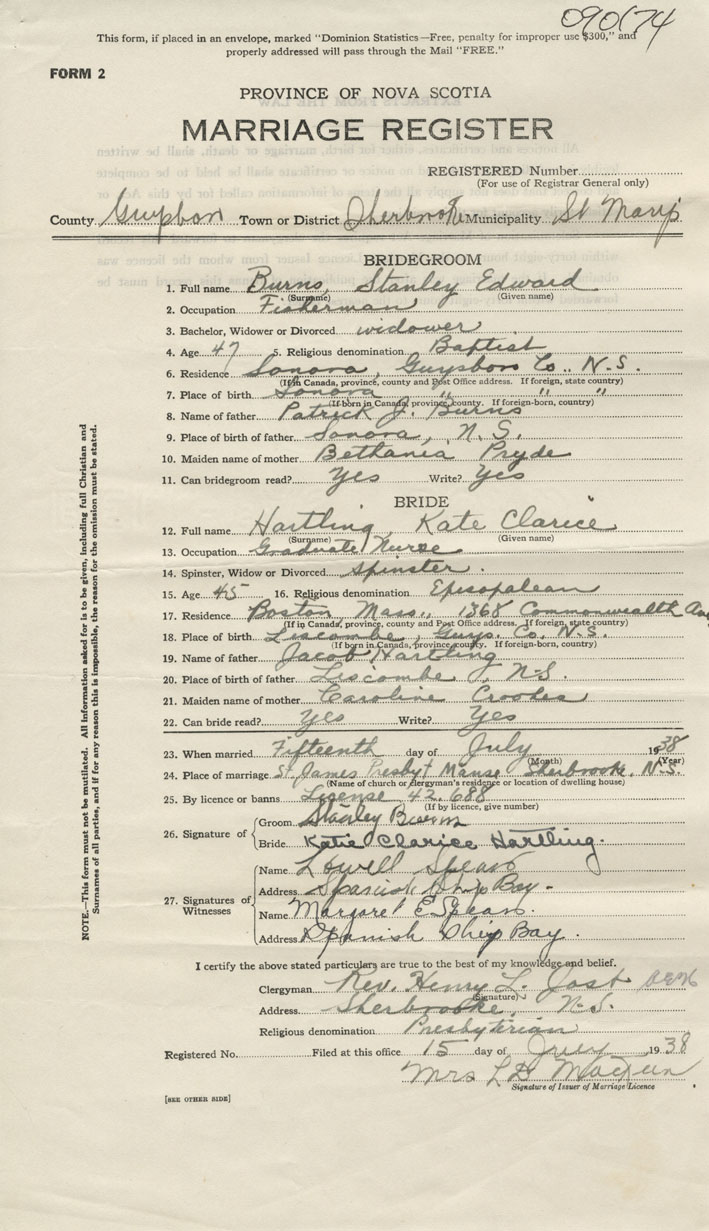 090174
This form, if placed in an envelope, marked "Dominion Statistics—Free, penalty for improper use $300," and
properly addressed will pass through the Mail "FREE."
FORM 2
PROVINCE OF NOVA SCOTIA
MARRIAGE REGISTER
REGISTERED Number
(For use of Registrar General only)
County Guysboro Town or District Sherbrooke Municipality St Marys
BRIDEGROOM
1. Full name Burns, Stanley Edward
(Surname) (Given name)
2. Occupation Fisherman
3. Bachelor, Widower or Divorced widower
4. Age 47 5. Religious denomination Baptist
6. Residence Sonora, Guysboro Co., N.S.
(If in Canada, province, county and Post Office address. If foreign, state country)
7. Place of birth Sonora " " "
(If born in Canada, province, county. If foreign-born, country)
8. Name of father Patrick J. Burns
9. Place of birth of father Sonora, N.S.
10. Maiden name of mother Bethania Pryde
11. Can bridegroom read? Yes Write? Yes
BRIDE
12. Full name Hartling, Kate Clarice
(Surname) (Given name)
13. Occupation Graduate Nurse
14. Spinster, Widow or Divorced spinster.
15. Age 45 16. Religious denomination Episcopalean
17. Residence Boston, Mass., 1368 Commonwealth Ave
(If in Canada, province, county and Post Office address. If foreign, state country)
18. Place of birth Liscombe, Guys. Co. N.S.
(If born in Canada, province, county. If foreign-born, country)
19. Name of father Jacob Hartling
20. Place of birth of father Liscombe, N.S.
21. Maiden name of mother Caroline Crookes
22. Can bride read? Yes Write? Yes
23. When married Fifteenth day of July 1938
(Month) (Year)
24. Place of marriage St. James Presbyt Manse Sherbrooke, N.S.
(Name of church or clergyman's residence or location of dwelling house)
25. By licence or banns License 42.688
(If by licence, give number)
26. Signature of
Groom Stanley Burns
Bride Katie Clarice Hartling.
27. Signatures of Witnesses
Name Lowell Spears
Address Spanish Ship Bay.
Name Margaret E Spears.
Address Spanish Ship Bay.
I certify the above stated particulars are true to the best of my knowledge and belief.
Clergyman Rev. Henry L. Jost
(Signature)
Address Sherbrooke, N.S.
Religious denomination Presbyterian
Registered No. Filed at this office 15 day of July 1938
Mrs L D
Signature of Issuer of Marriage Licence
[SEE OTHER SIDE]
NOTE.—This form must not be mutilated. All information asked for is to be given, including full Christian and
Surnames of all parties, and if for any reason this is impossible, the reason for the omission must be stated.